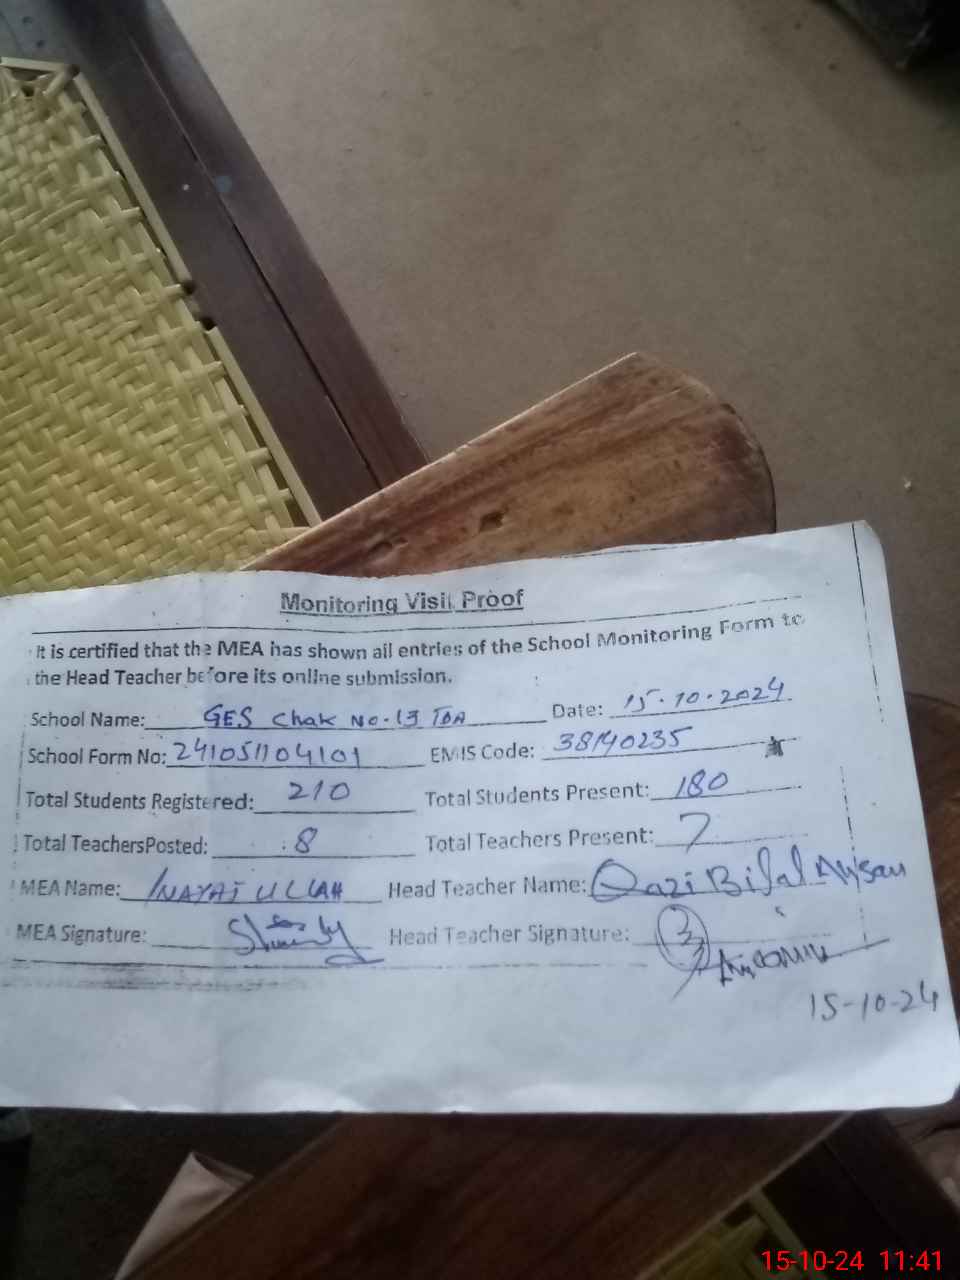 Monitoring Visit Proof
It is certified that the MEA has shown all entries of the School Monitoring Form to
the Head Teacher before its online submission.
School Name: GES Chak No-13 TDA Date: 15-10-2024
School Form No: 241051104101 EMIS Code: 38140235
Total Students Registered: 210 Total Students Present: 180
Total TeachersPosted: 8 Total Teachers Present: 7
MEA Name: INAYAT ULLAH Head Teacher Name: Qazi Bilal
MEA Signature: Head Teacher Signature:
15-10-24
15-10-24 11:41